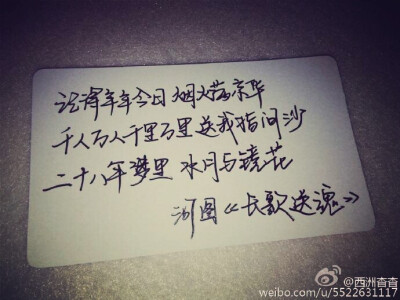 记得年年今日 烟火荡京华
千人万人千里万里送我指间沙
二十八年梦里 水月与镜花
河图《长歌送魂》
@西洲杳杳
weibo.com/u/5522631117